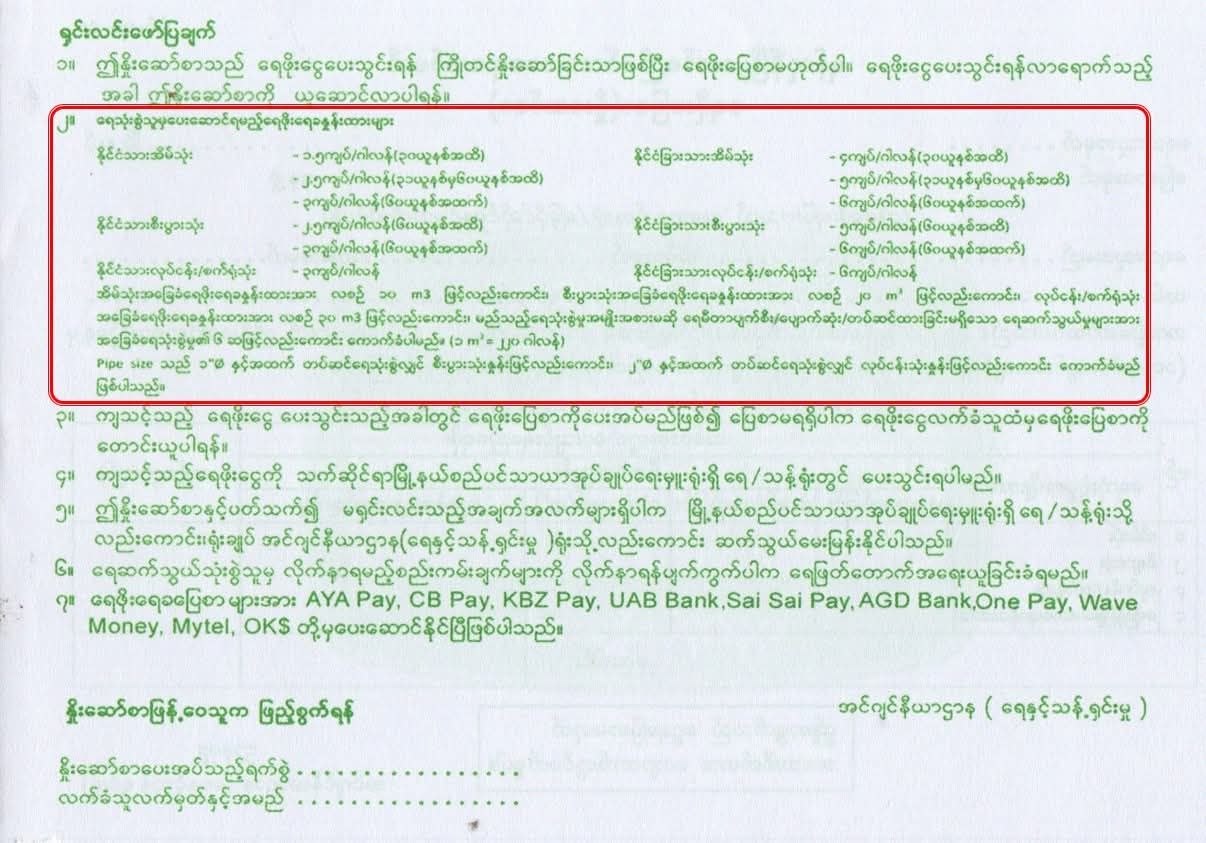 ရှင်းလင်းဖော်ပြချက်
၁။ ဤနှိုးဆော်စာသည် ရေဖိုးငွေပေးသွင်းရန် ကြိုတင်နှိုးဆော်ခြင်းသာဖြစ်ပြီး ရေဖိုးပြေစာမဟုတ်ပါ။ ရေဖိုးငွေပေးသွင်းရန်လာရောက်သည့်
အခါ ဤနှိုးဆော်စာကို ယူဆောင်လာပါရန်။
၂။ ရေသုံးစွဲသူမှပေးဆောင်ရမည့်ရေဖိုးရေခနှုန်းထားများ
နိုင်ငံသားအိမ်သုံး - ၁.၅ကျပ်/ဂါလန်(၃၀ယူနစ်အထိ) နိုင်ငံခြားသားအိမ်သုံး - ၄ကျပ်/ဂါလန်(၃၀ယူနစ်အထိ)
- ၂.၅ကျပ်/ဂါလန်(၃၁ယူနစ်မှ၆၀ယူနစ်အထိ) - ၅ကျပ်/ဂါလန်(၃၁ယူနစ်မှ၆၀ယူနစ်အထိ)
- ၃ကျပ်/ဂါလန်(၆၀ယူနစ်အထက်) - ၆ကျပ်/ဂါလန်(၆၀ယူနစ်အထက်)
နိုင်ငံသားစီးပွားသုံး - ၂.၅ကျပ်/ဂါလန်(၆၀ယူနစ်အထိ) နိုင်ငံခြားသားစီးပွားသုံး - ၅ကျပ်/ဂါလန်(၆၀ယူနစ်အထိ)
- ၃ကျပ်/ဂါလန်(၆၀ယူနစ်အထက်) - ၆ကျပ်/ဂါလန်(၆၀ယူနစ်အထက်)
နိုင်ငံသားလုပ်ငန်း/စက်ရုံသုံး - ၃ကျပ်/ဂါလန် နိုင်ငံခြားသားလုပ်ငန်း/စက်ရုံသုံး - ၆ကျပ်/ဂါလန်
အိမ်သုံးအခြေခံရေဖိုးရေခနှုန်းထားအား လစဉ် ၁၀ m3 ဖြင့်လည်းကောင်း၊ စီးပွားသုံးအခြေခံရေဖိုးရေခနှုန်းထားအား လစဉ် ၂၀ m³ ဖြင့်လည်းကောင်း၊ လုပ်ငန်း/စက်ရုံသုံး
အခြေခံရေဖိုးရေခနှုန်းထားအား လစဉ် ၃၀ m3 ဖြင့်လည်းကောင်း၊ မည်သည့်ရေသုံးစွဲမှုအမျိုးအစားမဆို ရေမီတာပျက်စီး/ပျောက်ဆုံး/တပ်ဆင်ထားခြင်းမရှိသော ရေဆက်သွယ်မှုများအား
အခြေခံရေသုံးစွဲမှု၏ ၆ ဆဖြင့်လည်းကောင်း ကောက်ခံပါမည်။ (၁ m³ = ၂၂၀ ဂါလန်)
Pipe size သည် ၁"Ø နှင့်အထက် တပ်ဆင်ရေသုံးစွဲလျှင် စီးပွားသုံးနှုန်းဖြင့်လည်းကောင်း၊ ၂"Ø နှင့်အထက် တပ်ဆင်ရေသုံးစွဲလျှင် လုပ်ငန်းသုံးနှုန်းဖြင့်လည်းကောင်း ကောက်ခံမည်
ဖြစ်ပါသည်။
၃။ ကျသင့်သည့် ရေဖိုးငွေ ပေးသွင်းသည့်အခါတွင် ရေဖိုးပြေစာကိုပေးအပ်မည်ဖြစ်၍ ပြေစာမရရှိပါက ရေဖိုးငွေလက်ခံသူထံမှရေဖိုးပြေစာကို
တောင်းယူပါရန်။
၄။ ကျသင့်သည့်ရေဖိုးငွေကို သက်ဆိုင်ရာမြို့နယ်စည်ပင်သာယာအုပ်ချုပ်ရေးမှူးရုံးရှိ ရေ / သန့်ရုံးတွင် ပေးသွင်းရပါမည်။
၅။ ဤနှိုးဆော်စာနှင့်ပတ်သက်၍ မရှင်းလင်းသည့်အချက်အလက်များရှိပါက မြို့နယ်စည်ပင်သာယာအုပ်ချုပ်ရေးမှူးရုံးရှိ ရေ / သန့်ရုံးသို့
လည်းကောင်း၊ရုံးချုပ် အင်ဂျင်နီယာဌာန(ရေနှင့်သန့်ရှင်းမှု )ရုံးသို့လည်းကောင်း ဆက်သွယ်မေးမြန်းနိုင်ပါသည်။
၆။ ရေဆက်သွယ်သုံးစွဲသူမှ လိုက်နာရမည့်စည်းကမ်းချက်များကို လိုက်နာရန်ပျက်ကွက်ပါက ရေဖြတ်တောက်အရေးယူခြင်းခံရမည်။
၇။ ရေဖိုးရေခပြေစာများအား AYA Pay, CB Pay, KBZ Pay, UAB Bank,Sai Sai Pay, AGD Bank,One Pay, Wave
Money, Mytel, OK$ တို့မှပေးဆောင်နိုင်ပြီဖြစ်ပါသည်။
နှိုးဆော်စာဖြန့်ဝေသူက ဖြည့်စွက်ရန်
အင်ဂျင်နီယာဌာန ( ရေနှင့်သန့်ရှင်းမှု )
နှိုးဆော်စာပေးအပ်သည့်ရက်စွဲ . . . . . . . . . . . . . . . . .
လက်ခံသူလက်မှတ်နှင့်အမည် . . . . . . . . . . . . . . . . .